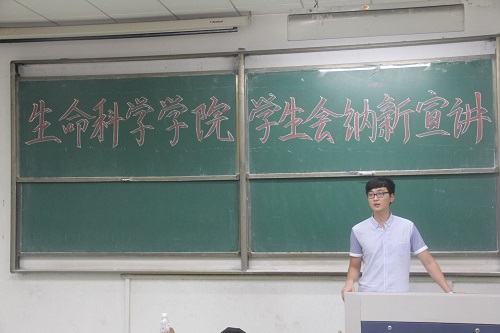 生命科学学院 学生会纳新宣讲